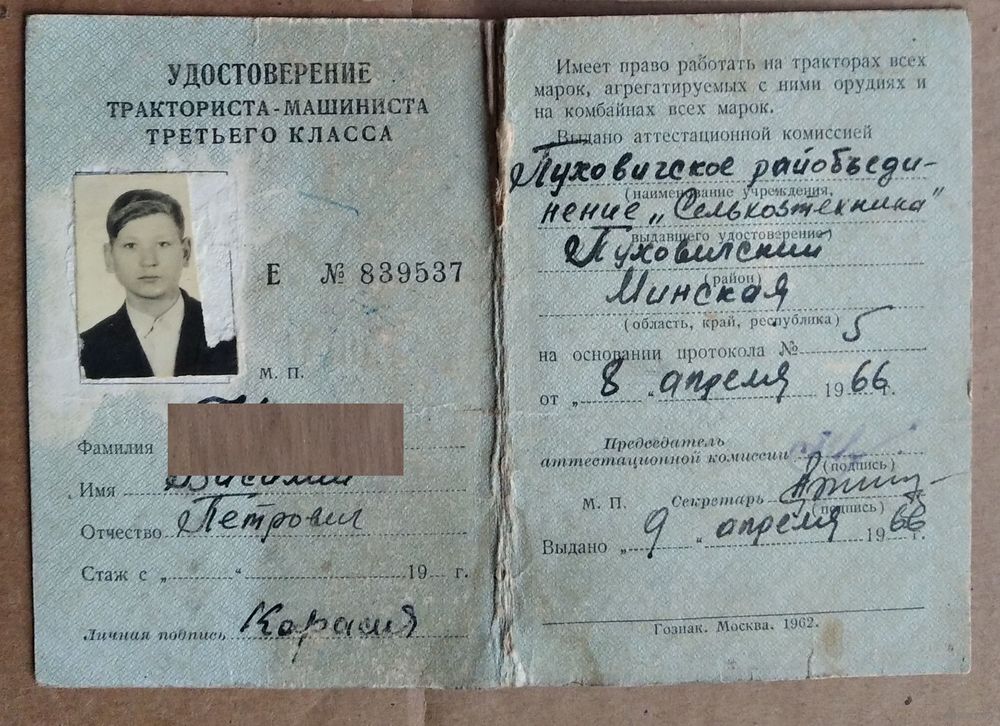 УДОСТОВЕРЕНИЕ
ТРАКТОРИСТА-МАШИНИСТА
ТРЕТЬЕГО КЛАССА
Е № 839537
М. П.
Фамилия
Имя
Отчество Петрович
Стаж с „ “ 19 г.
Личная подпись
Имеет право работать на тракторах всех
марок, агрегатируемых с ними орудиях и
на комбайнах всех марок.
Выдано аттестационной комиссией
Пуховичское райобъеди-
(наименование учреждения,
нение „Сельхозтехника"
выдавшего удостоверение)
Пуховичский
(район)
Минская
(область, край, республика)
на основании протокола № 5
от „8“ апреля 1966 г.
Председатель
аттестационной комиссии
(подпись)
М. П. Секретарь
(подпись)
Выдано „9“ апреля 1966 г.
Гознак. Москва. 1962.